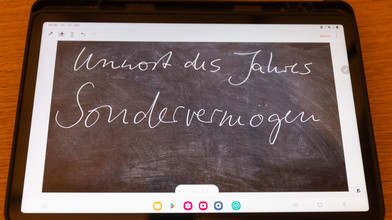 Unwort des Jahres
Sondervermögen